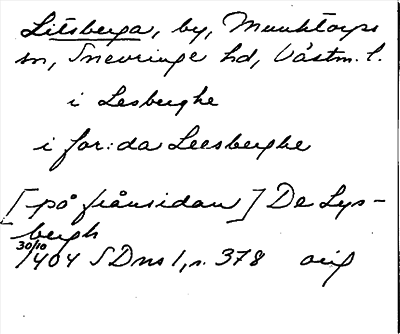 Litsberga, by, Munktorps
sn, Snevringe hd, Västm. l.
i Lesberghe
i for:da Leesberghe
[på frånsidan] De Lys-
bergh
30/10 1404 SDns 1, n. 378 orig